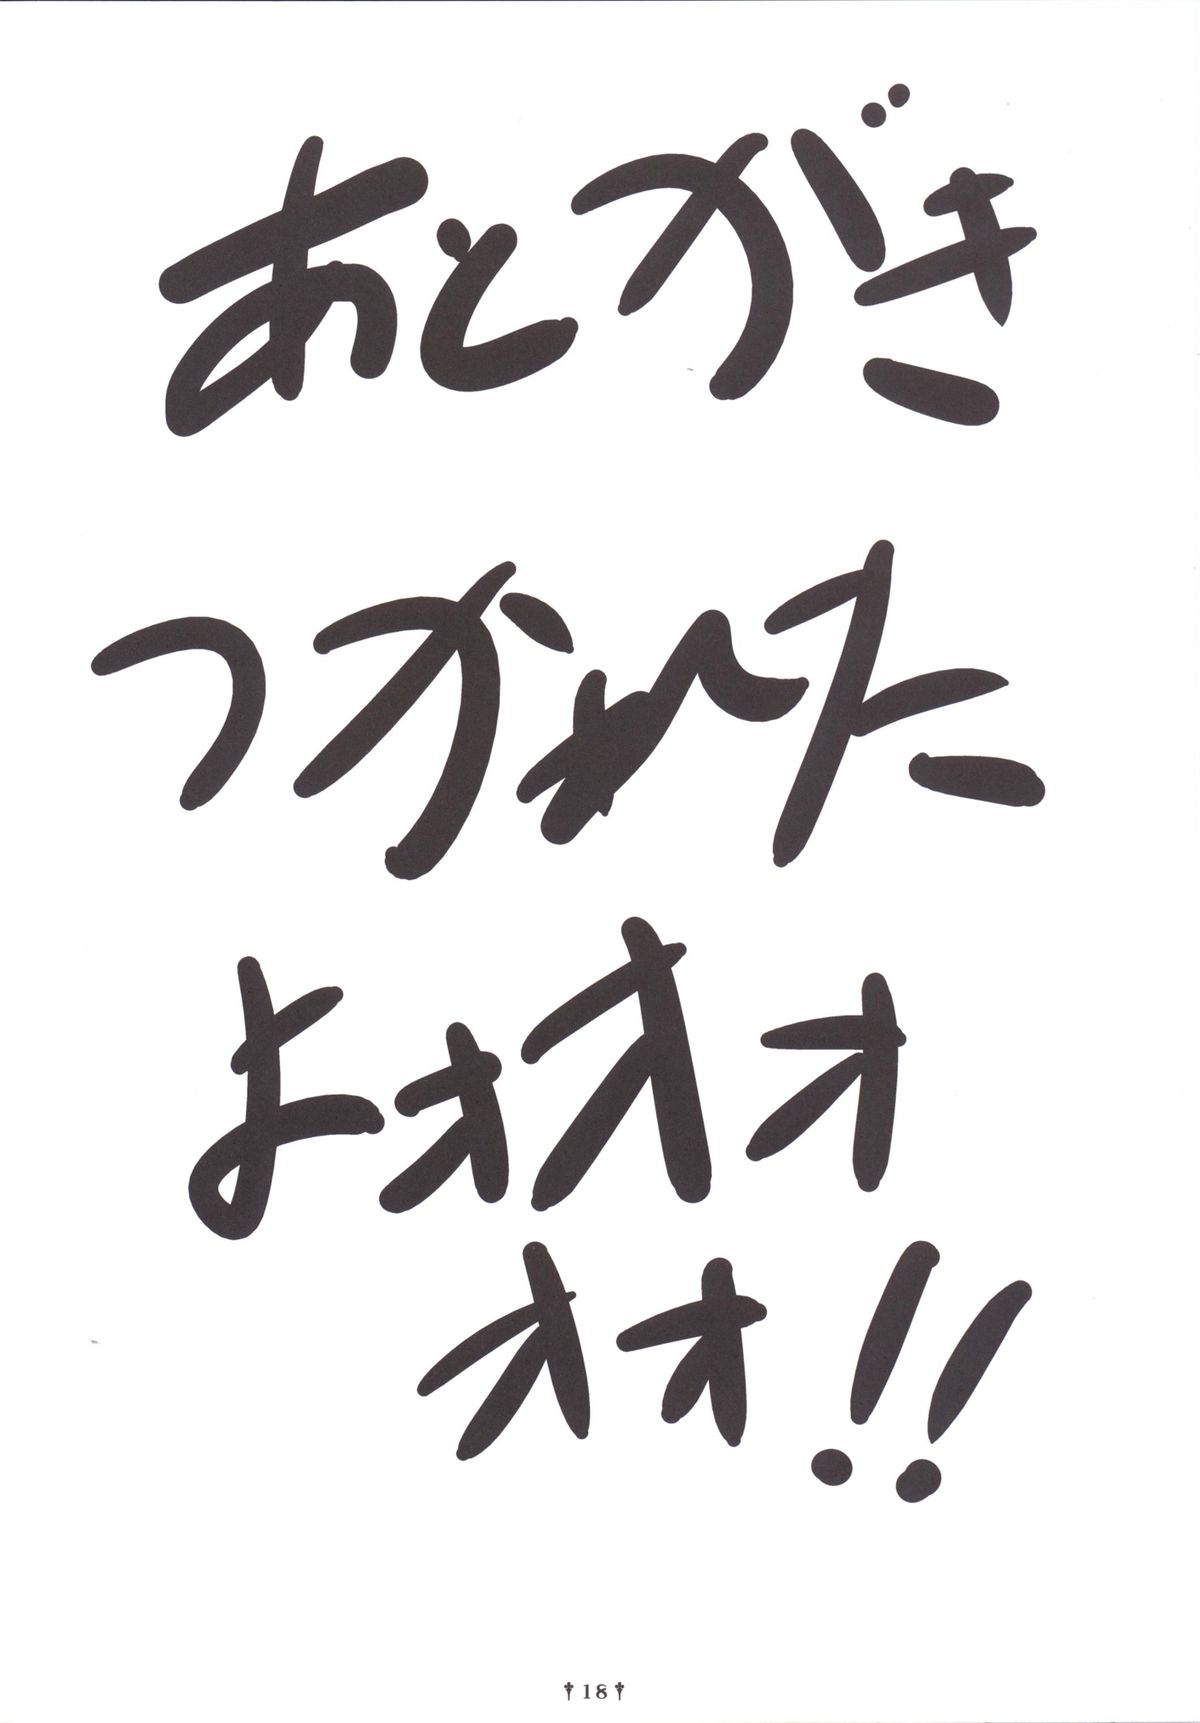 あとがき
つかれた
よォオォ
オォ!!
18